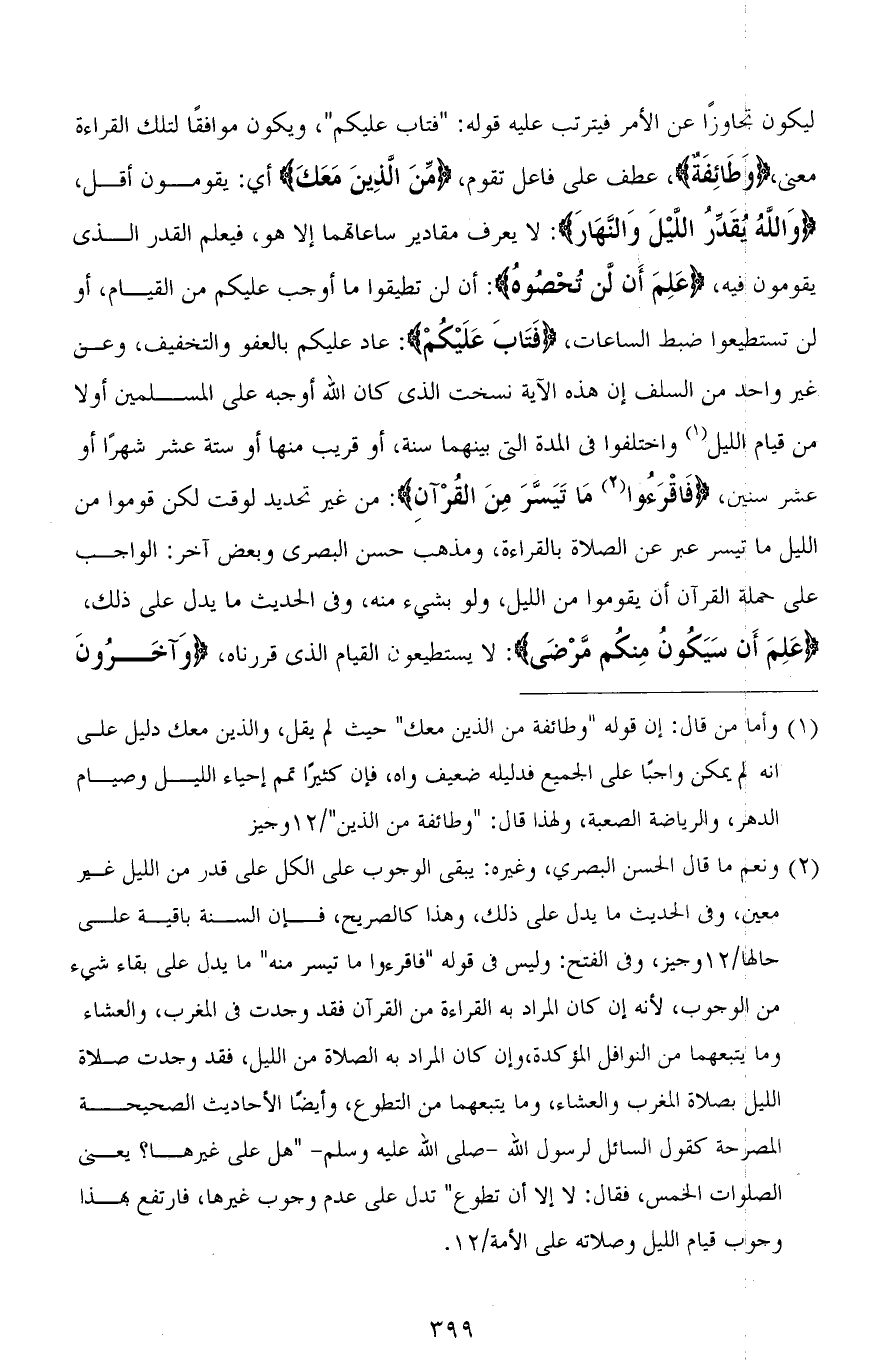 ليكون تجاوزًا عن الأمر فيترتب عليه قوله: "فتاب عليكم"، ويكون موافقًا لتلك القراءة
معنى، ﴿وَطَائِفَةٌ﴾، عطف على فاعل تقوم، ﴿مِّنَ الَّذِينَ مَعَكَ﴾ أي: يقومون أقل،
﴿وَاللَّهُ يُقَدِّرُ اللَّيْلَ وَالنَّهَارَ﴾: لا يعرف مقادير ساعاتهما إلا هو، فيعلم القدر الذى
يقومون فيه، ﴿عَلِمَ أَن لَّن تُحْصُوهُ﴾: أن لن تطيقوا ما أوجب عليكم من القيام، أو
لن تستطيعوا ضبط الساعات، ﴿فَتَابَ عَلَيْكُمْ﴾: عاد عليكم بالعفو والتخفيف، وعن
غير واحد من السلف إن هذه الآية نسخت الذى كان الله أوجبه على المسلمين أولا
من قيام الليل(١) واختلفوا فى المدة التى بينهما سنة، أو قريب منها أو ستة عشر شهرًا أو
عشر سنين، ﴿فَاقْرَءُوا(٢) مَا تَيَسَّرَ مِنَ القُرْآنِ﴾: من غير تحديد لوقت لكن قوموا من
الليل ما تيسر عبر عن الصلاة بالقراءة، ومذهب حسن البصرى وبعض آخر: الواجب
على حملة القرآن أن يقوموا من الليل، ولو بشيء منه، وفى الحديث ما يدل على ذلك،
﴿عَلِمَ أَن سَيَكُونُ مِنكُم مَّرْضَى﴾: لا يستطيعون القيام الذى قررناه، ﴿وَآخَرُونَ
(١) وأما من قال: إن قوله "وطائفة من الذين معك" حيث لم يقل، والذين معك دليل على
انه لم يمكن واجبًا على الجميع فدليله ضعيف واه، فإن كثيرًا تمم إحياء الليل وصيام
الدهر، والرياضة الصعبة، ولهذا قال: "وطائفة من الذين"/١٢وجيز
(٢) ونعم ما قال الحسن البصري، وغيره: يبقى الوجوب على الكل على قدر من الليل غير
معين، وفى الحديث ما يدل على ذلك، وهذا كالصريح، فإن السنة باقية على
حالها/١٢وجيز، وفى الفتح: وليس فى قوله "فاقرءوا ما تيسر منه" ما يدل على بقاء شيء
من الوجوب، لأنه إن كان المراد به القراءة من القرآن فقد وجدت فى المغرب، والعشاء
وما يتبعهما من النوافل المؤكدة،وإن كان المراد به الصلاة من الليل، فقد وجدت صلاة
الليل بصلاة المغرب والعشاء، وما يتبعهما من التطوع، وأيضًا الأحاديث الصحيحة
المصرحة كقول السائل لرسول الله -صلى الله عليه وسلم- "هل على غيرها؟ يعنى
الصلوات الخمس، فقال: لا إلا أن تطوع" تدل على عدم وجوب غيرها، فارتفع بهذا
وجوب قيام الليل وصلاته على الأمة/١٢.
٣٩٩